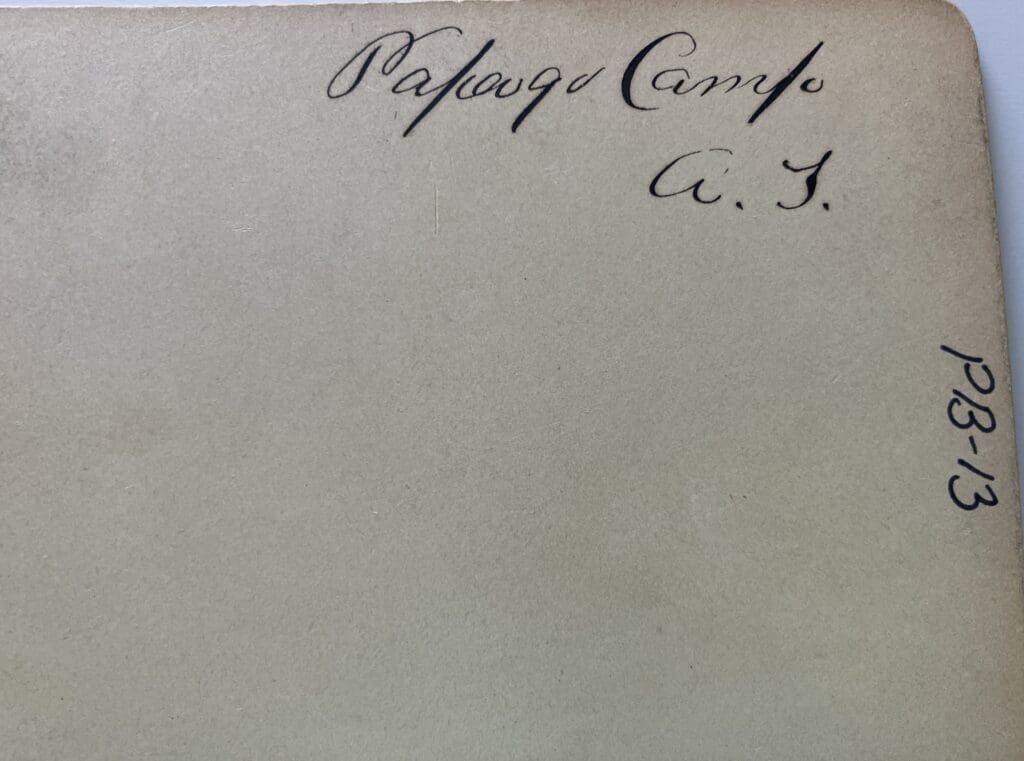 Papago Camp
A. T.
PB-13